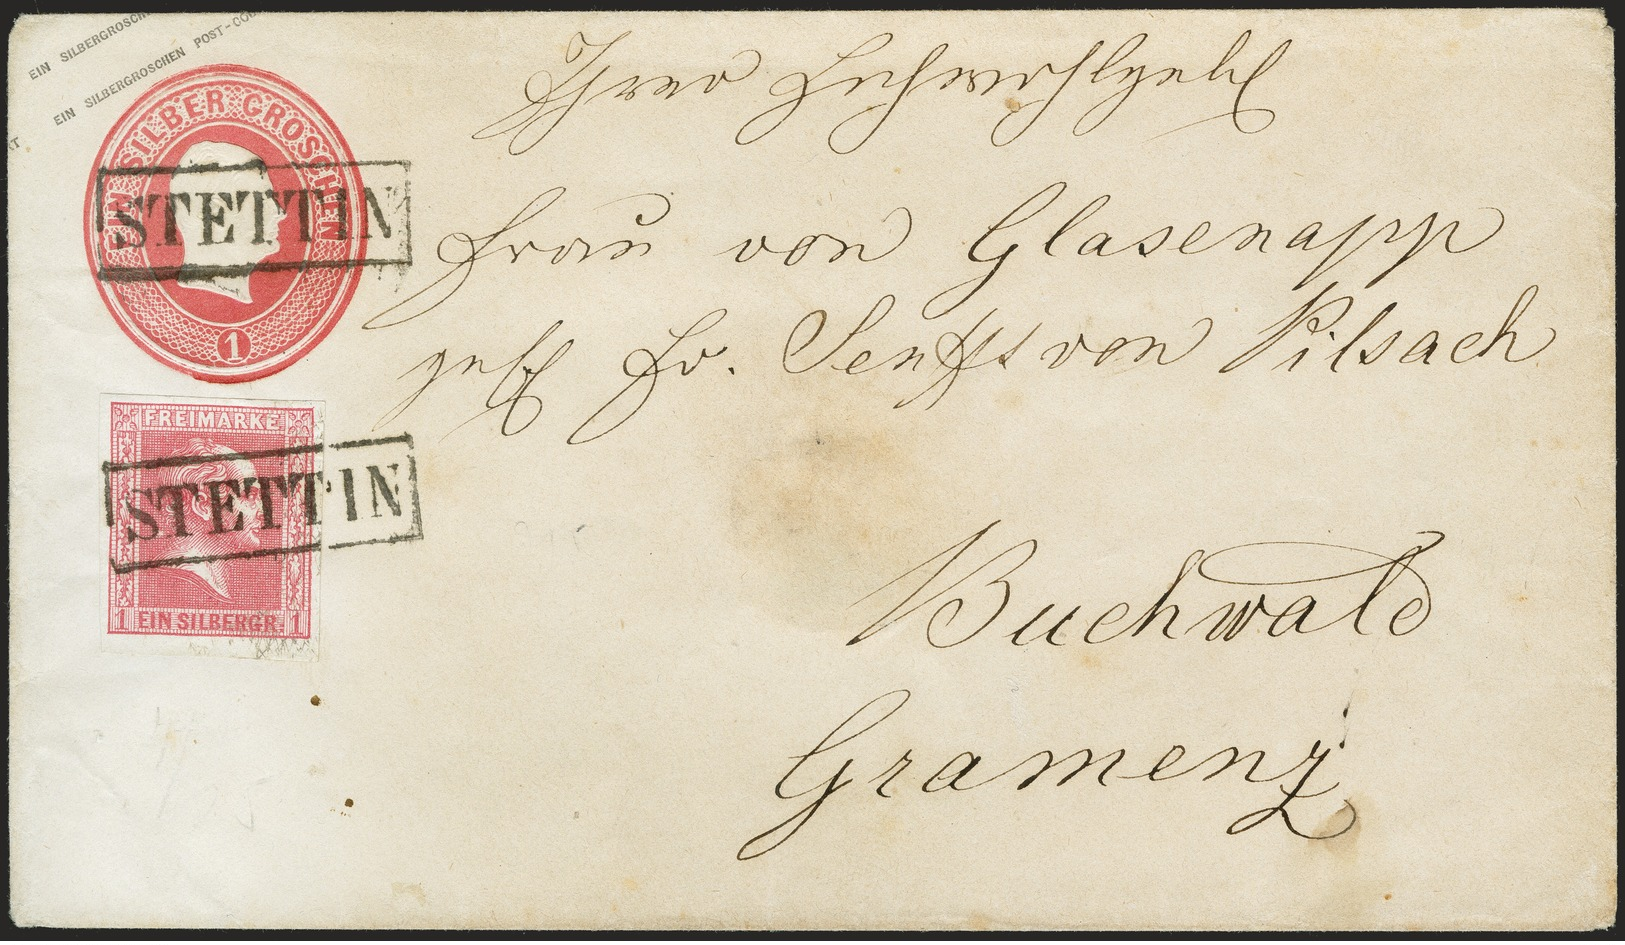 EIN SILBERGROSCH
EIN SILBERGROSCHEN POST-COU
RT
EIN SILBER GROSCHEN
STETTIN
1
FREIMARKE
STETTIN
1 EIN SILBERGR. 1
Ihrer Hochwohlgeb
Frau von Glasenapp
geb Fr. Senfft von Pilsach
Buchwald
Gramenz